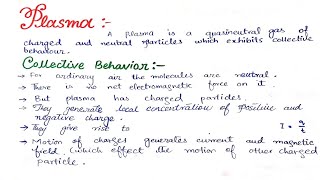 Plasma:-
A plasma is a quasineutral gas of
charged and neutral particles which exhibits collective
behaviour.
Collective Behavior:-
→ For ordinary air the molecules are neutral.
→ There is no net electromagnetic force on it
→ But plasma has charged particles.
→ They generate local concentration of positive and
negative charge.
→ They give rise to I = q/t
→ Motion of charges generates current and magnetic
field, which effect the motion of other charged
particle.